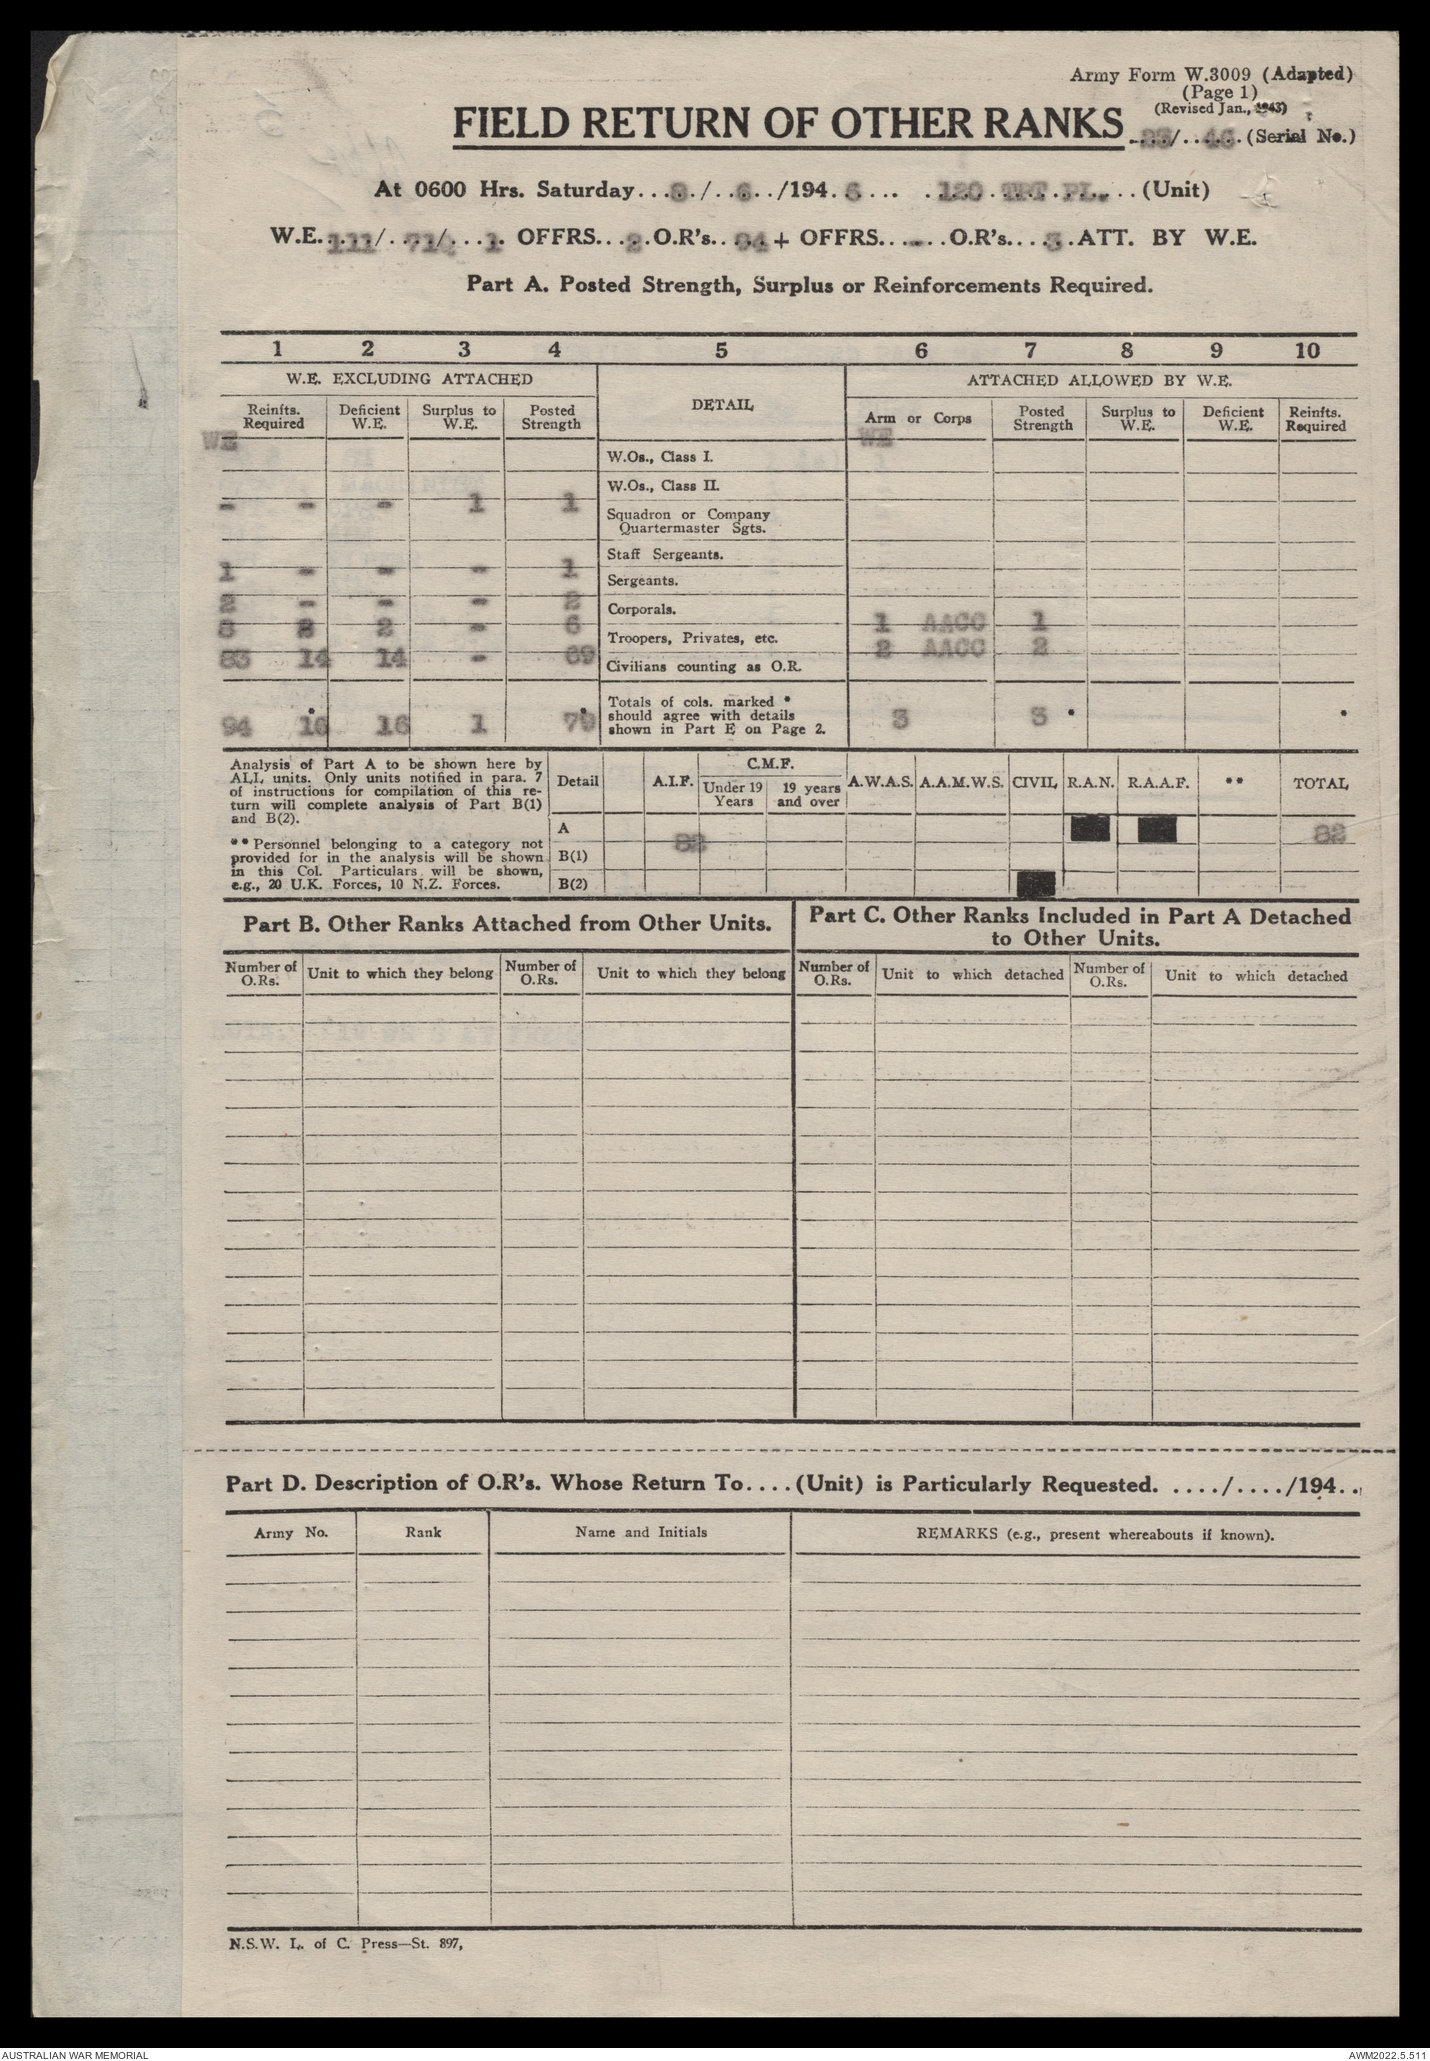 Army Form W.3009 (Adapted)
(Page 1)
(Revised Jan., 1943)
FIELD RETURN OF OTHER RANKS 23/ 46 (Serial No.)
At 0600 Hrs. Saturday...8./..6../194.6... .120 TPT PL...(Unit)
W.E. 111/ / 1. OFFRS...2.O.R's..94+ OFFRS...-..O.R's....3.ATT. BY W.E.
Part A. Posted Strength, Surplus or Reinforcements Required.
1 2 3 4 5 6 7 8 9 10
W.E. EXCLUDING ATTACHED DETAIL ATTACHED ALLOWED BY W.E.
Reinfts. Required Deficient W.E. Surplus to W.E. Posted Strength Arm or Corps Posted Strength Surplus to W.E. Deficient W.E. Reinfts. Required
WE WE
W.Os., Class I.
W.Os., Class II.
- - - 1 1 Squadron or Company
Quartermaster Sgts.
Staff Sergeants.
1 - - - 1 Sergeants.
2 - - - 2 Corporals.
8 2 2 - 6 Troopers, Privates, etc. 1 AACC 1
83 14 14 - 69 Civilians counting as O.R. 2 AACC 2
94 16 16 1 79 Totals of cols. marked *
should agree with details
shown in Part E on Page 2. 3 3 * *
Analysis of Part A to be shown here by
ALL units. Only units notified in para. 7
of instructions for compilation of this re-
turn will complete analysis of Part B(1)
and B(2).
** Personnel belonging to a category not
provided for in the analysis will be shown
in this Col. Particulars will be shown,
e.g., 20 U.K. Forces, 10 N.Z. Forces.
Detail A.I.F. C.M.F. Under 19 Years 19 years and over A.W.A.S. A.A.M.W.S. CIVIL R.A.N. R.A.A.F. ** TOTAL
A 82 82
B(1)
B(2)
Part B. Other Ranks Attached from Other Units.
Part C. Other Ranks Included in Part A Detached
to Other Units.
Number of O.Rs. Unit to which they belong Number of O.Rs. Unit to which they belong Number of O.Rs. Unit to which detached Number of O.Rs. Unit to which detached
Part D. Description of O.R's. Whose Return To....(Unit) is Particularly Requested. ..../..../194..
Army No. Rank Name and Initials REMARKS (e.g., present whereabouts if known).
N.S.W. L. of C. Press—St. 897,
AUSTRALIAN WAR MEMORIAL AWM2022.5.511